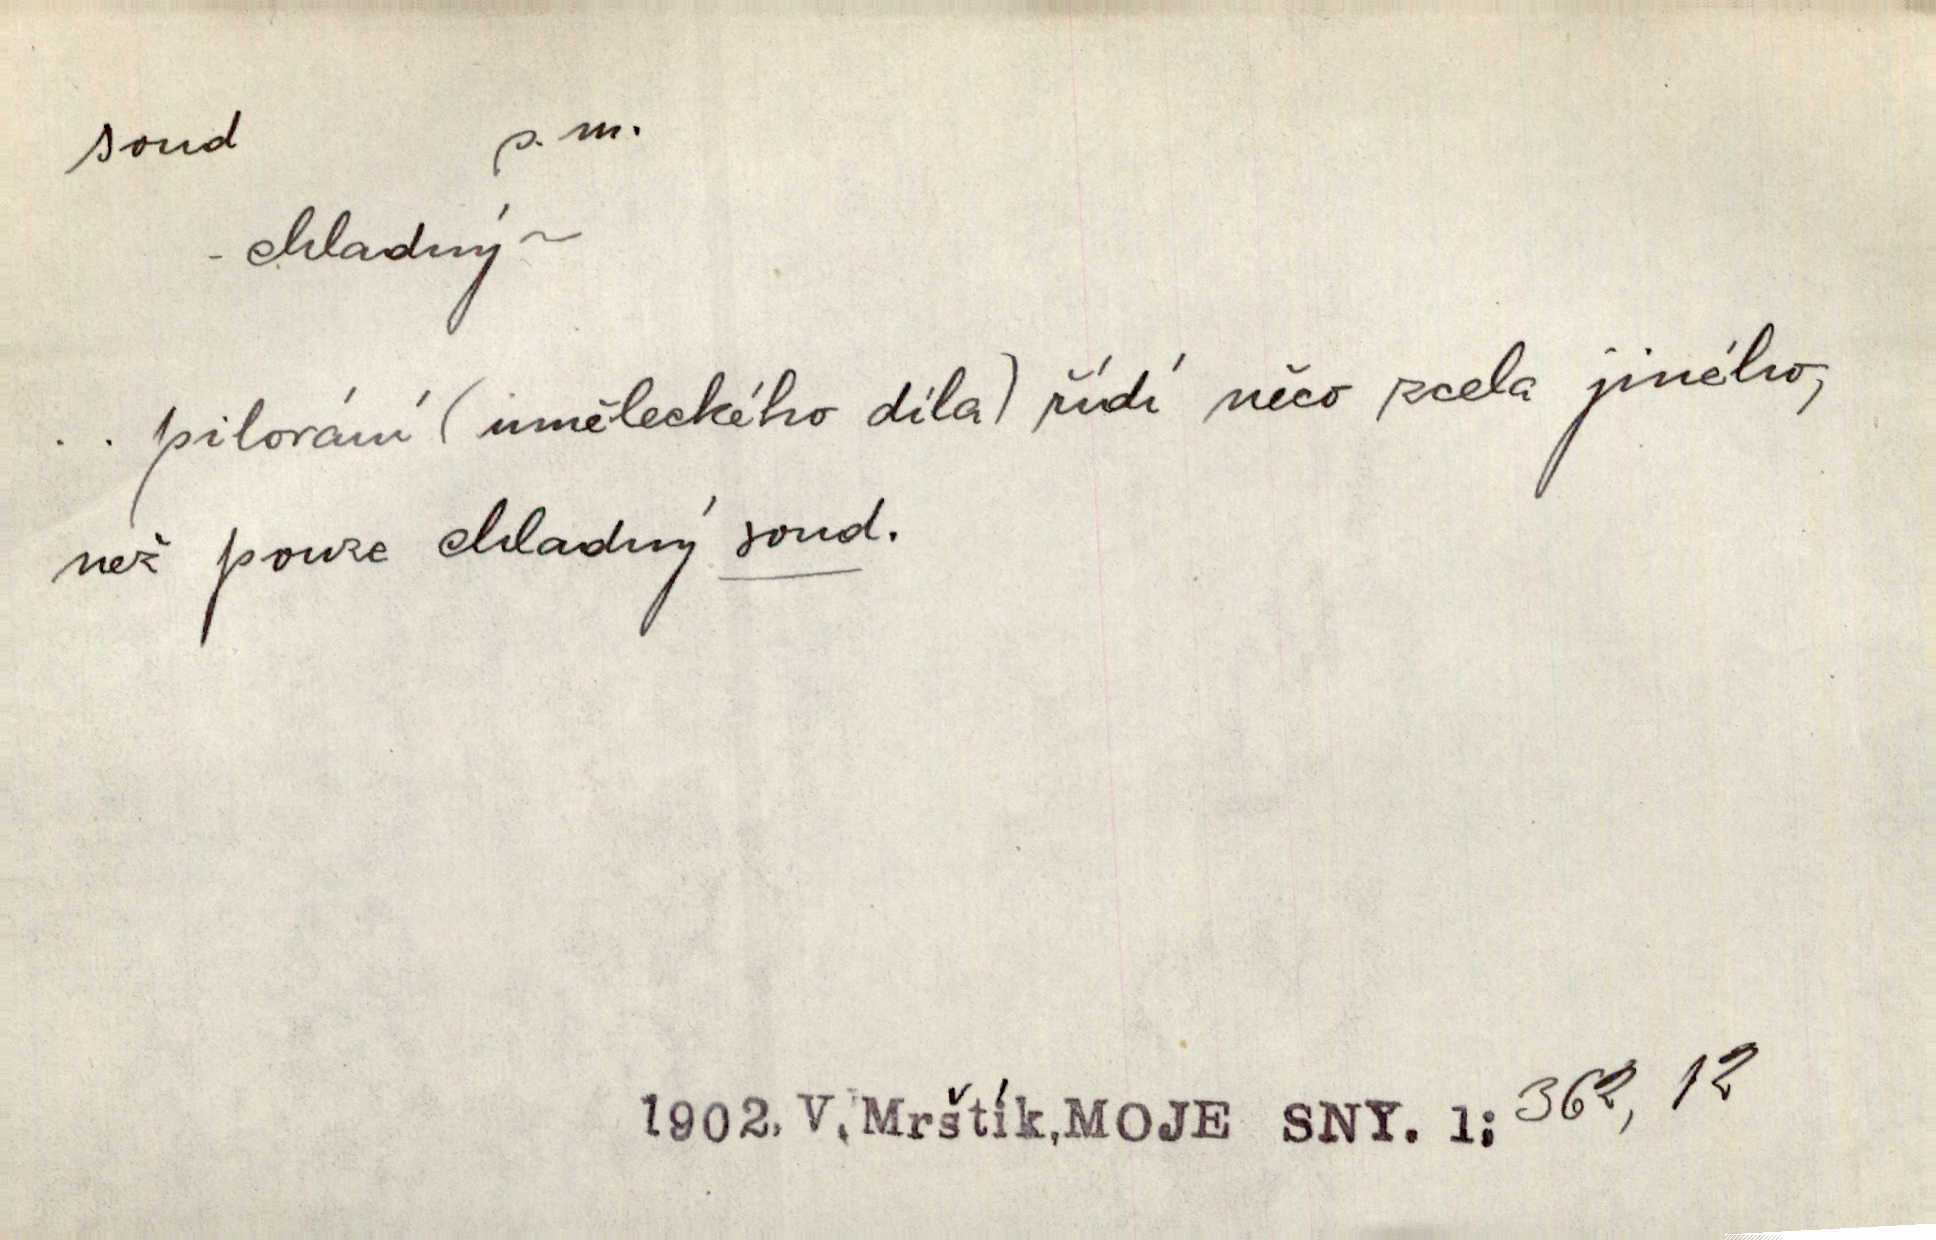 soud s. m.
- chladný ~
. . pilování (uměleckého díla) řídí něco zcela jiného,
než pouze chladný soud.
1902. V. Mrštík, MOJE SNY. 1; 362, 12